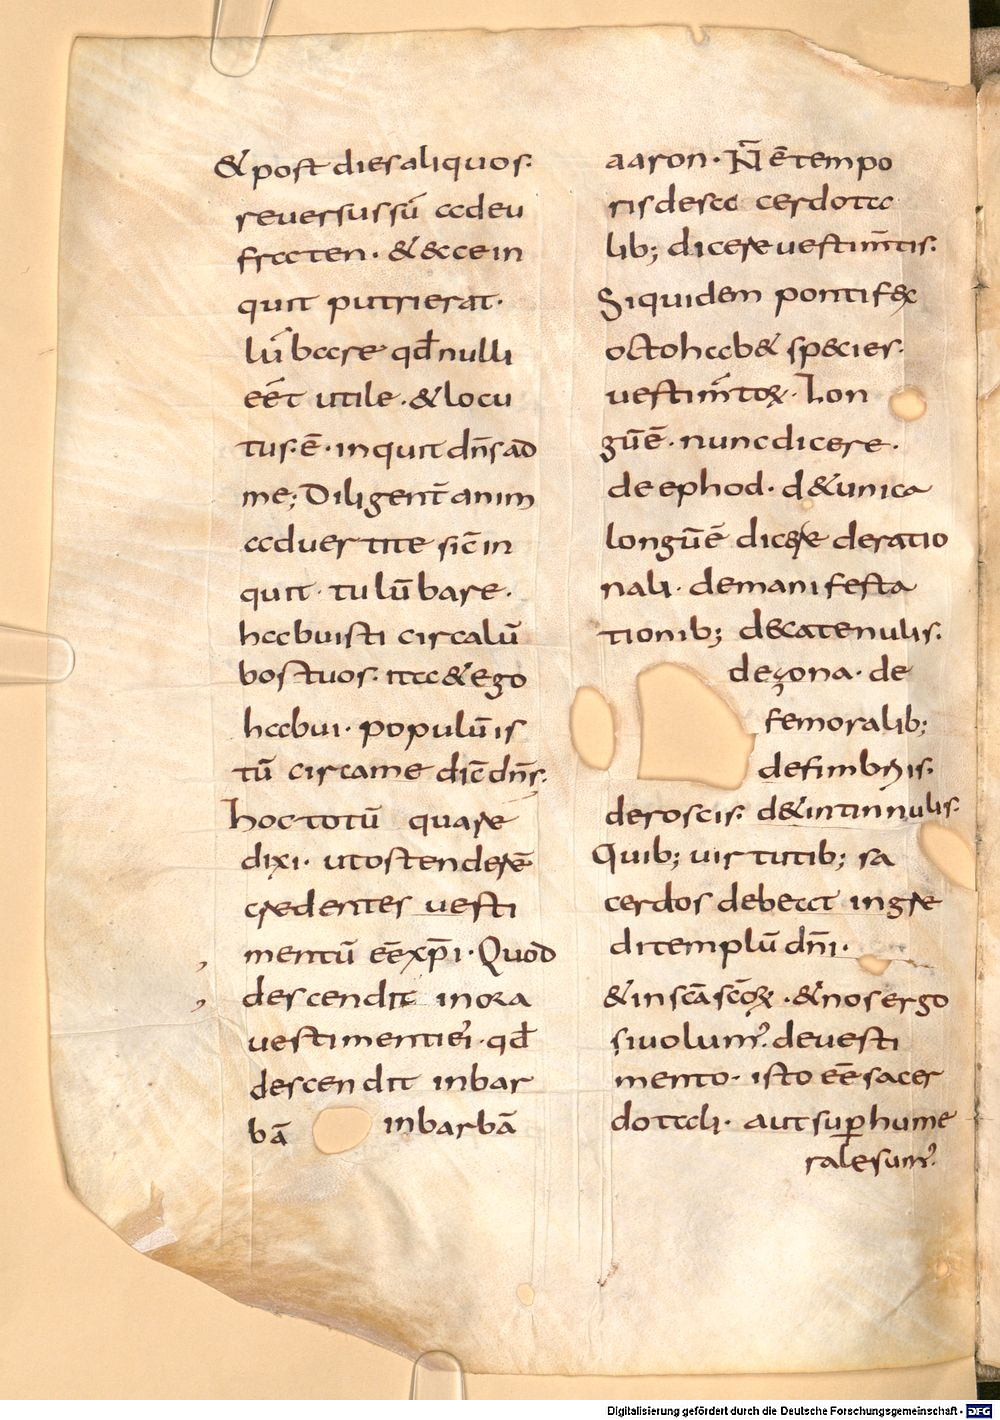 & post dies aliquos.
reuersus sū ad eu
fraten · & ecce in
quit putrierat ·
lū bare qđ nulli
eēt utile · & locu
tus · ē · inquit dn̄s ad
me; Diligent̄ anim
aduertite sic̄ in
quit · tu lūbare ·
habuisti circa lū
bos tuos · ita & ego
habui · populū is
tū circa me dic̄ dn̄s;
hoc totū quare
dixi · ut ostenderē
credentes uesti
mentū eē xp̄i · Quod
descendit in ora
uestimenti ei · qđ
descendit in bar
bā in barbā
aaron · N̄ ē tempo
ris de sacerdota
lib; dicere uestim̄tis.
Siquidem pontifex
octo hab& species.
uestim̄toꝝ · Lon
gū ē · nunc dicere ·
de ephod · d& unica
longū ē dicere de ratio
nali · de manifesta
tionib; de catenulis.
de zona · de
femoralib;
de fimbriis.
de roscis. d& intinnulis.
Quib; uirtutib; sa
cerdos debeat ingre
di templū dn̄i ·
& in sc̄a sc̄oꝝ · & nos ergo
si uolum᾿. de uesti
mento · isto eē sacer
dotali · aut sup̄ hume
rale sum᾿.
Digitalisierung gefördert durch die Deutsche Forschungsgemeinschaft - DFG